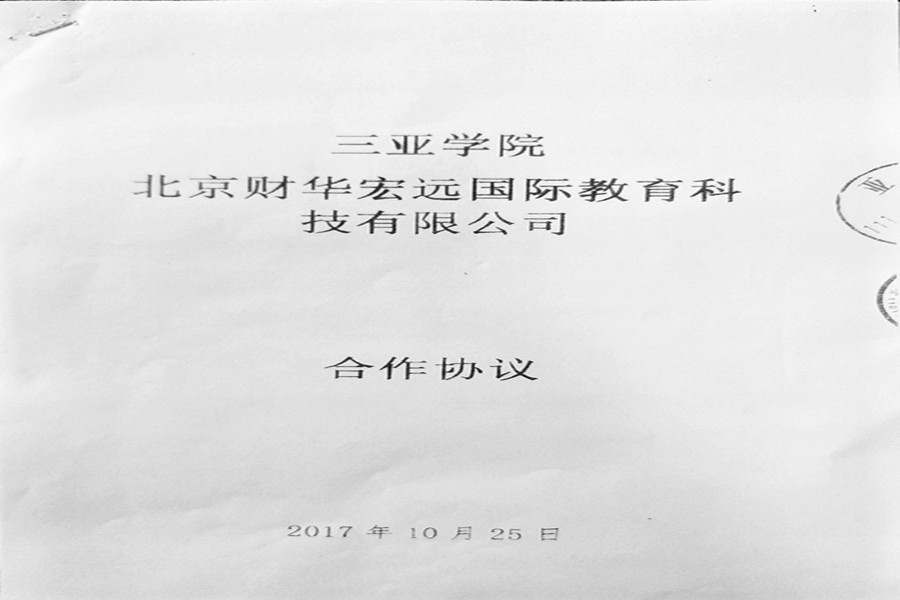 三亚学院
北京财华宏远国际教育科
技有限公司
合作协议
2017 年 10 月 25 日
亚
三